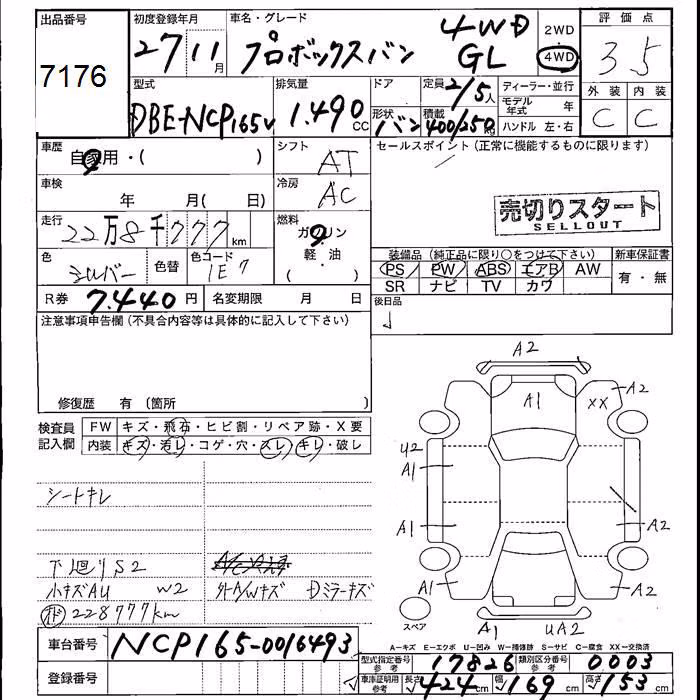 出品番号
7176
初度登録年月
27 11月
車名・グレード
プロボックスバン
4WD
GL
2WD
4WD
評価点
3.5
外装 内装
C C
型式
DBE-NCP165V
排気量
1.490 CC
ドア
形状
バン
定員
2/5人
積載
400/250 kg
ディーラー・並行
モデル年式 年
ハンドル 左・右
車歴
自家用・( )
シフト
AT
セールスポイント (正常に機能するものに限ります)
車検
年 月( 日)
冷房
AC
売切りスタート
SELLOUT
走行
22万8千777km
燃料
ガソリン
軽・油
( )
色
シルバー
色替
色コード
1E7
装備品 (純正品に限り○をつけて下さい)
新車保証書
PS PW ABS エアB AW
SR ナビ TV カワ
有・無
R券
7.440円
名変期限 月 日
後日品
注意事項申告欄(不具合内容等は具体的に記入して下さい)
修復歴 有 (箇所 )
検査員記入欄
FW キズ・飛石・ヒビ割・リペア跡・X要
内装 キズ・汚レ・コゲ・穴・スレ・キレ・破レ
シートキレ
下廻りS2
小キズAU W2
外A/Wキズ Dミラーキズ
228777km
A2
A1
XX
A2
U2
A1
A1
A2
A1
A2
スペア
A1
UA2
A−キズ E−エクボ U−凹み W−補修跡 S−サビ C−腐食 XX−交換済
車台番号
NCP165-0016493
登録番号
型式指定番号
参考
17826
類別区分番号
参考
0003
車庫証明用
参考
長さ
424cm
幅
169cm
高さ
153cm